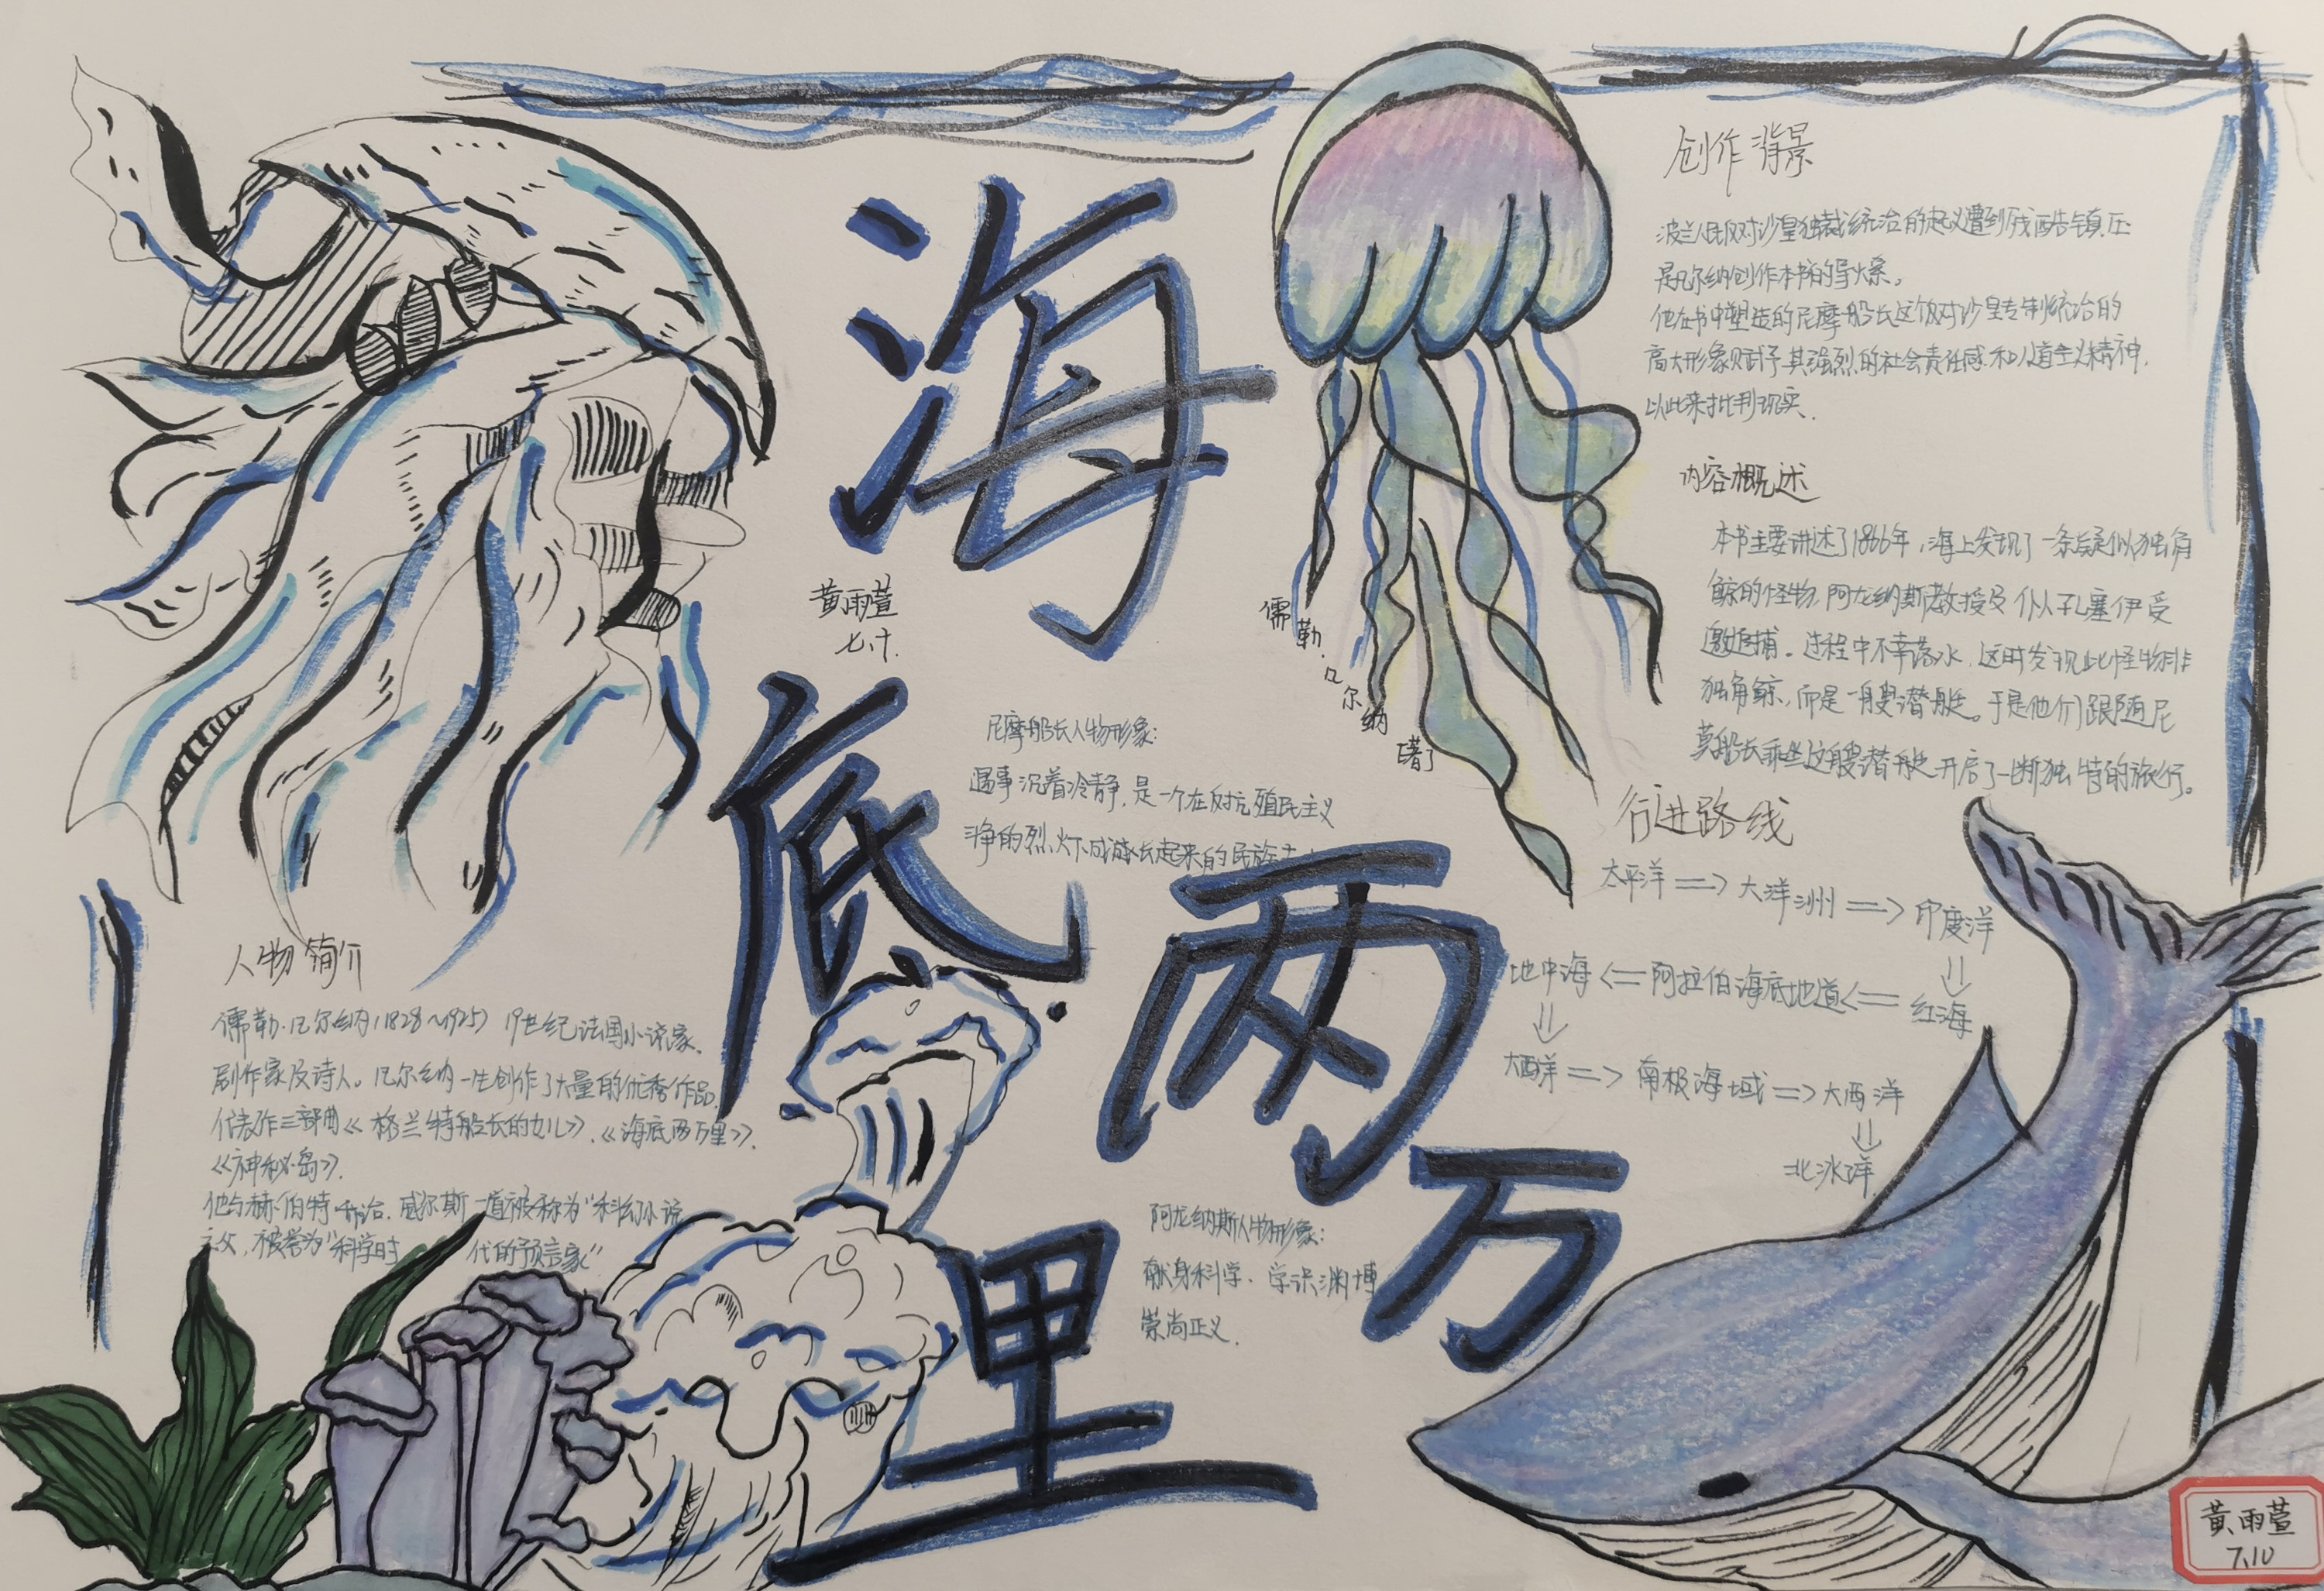 海底两万里
黄雨萱
七.十.
儒勒.凡尔纳著
创作背景
波兰人民反对沙皇独裁统治的起义遭到残酷镇压
是凡尔纳创作本书的导火索。
他在书中塑造的尼摩船长这个反对沙皇专制统治的
高大形象赋予其强烈的社会责任感和人道主义精神,
以此来批判现实.
内容概述
本书主要讲述了1866年,海上发现了一条疑似独角
鲸的怪物,阿龙纳斯教授及仆人孔塞伊受
邀追捕。过程中不幸落水,这时发现此怪物非
独角鲸,而是一艘潜艇。于是他们跟随尼
莫船长乘坐这艘潜艇开启了一断独特的旅行。
行进路线
太平洋 => 大洋洲 => 印度洋
地中海 <= 阿拉伯海底地道 <= 红海
大西洋 => 南极海域 => 大西洋
北冰洋
尼摩船长人物形象:
遇事沉着冷静,是一个在反抗殖民主义
斗争的烈火下成长起来的民族
人物简介
儒勒.凡尔纳(1828~1925) 19世纪法国小说家、
剧作家及诗人。凡尔纳一生创作了大量的优秀作品,
代表作三部曲《格兰特船长的女儿》.《海底两万里》.
《神秘岛》.
他与赫伯特.乔治.威尔斯一道被称为“科幻小说
之父,被誉为“科学时 代的预言家”
阿龙纳斯人物形象:
献身科学. 学识渊博
崇尚正义.
黄雨萱
7.10